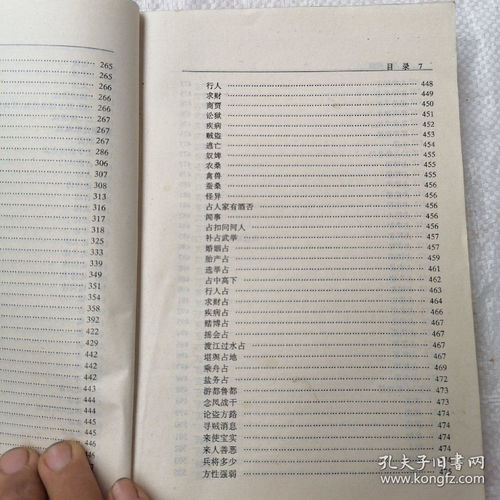 265
265
266
266
266
267
267
286
306
307
308
313
316
317
318
325
335
339
349
351
354
358
392
422
429
442
442
442
443
444
444
445
446
目录 7
行人 448
求财 449
商贾 450
讼狱 451
疾病 452
贼盗 453
逃亡 454
奴婢 455
农桑 455
禽兽 455
蚕桑 456
怪异 456
占人家有酒否 456
闻事 456
占扣问同人 456
补占武举 457
婚姻占 457
胎产占 459
选举占 461
占中高下 462
行人占 463
求财占 464
疾病占 466
赌博占 467
摇会占 467
渡江过水占 467
堪舆占地 467
乘舟占 469
盐务占 472
游都鲁都 473
念凤战干 473
论盗方路 474
寻贼消息 474
来使宝实 474
来人善恶
兵将多少
方性强弱
孔夫子旧书网